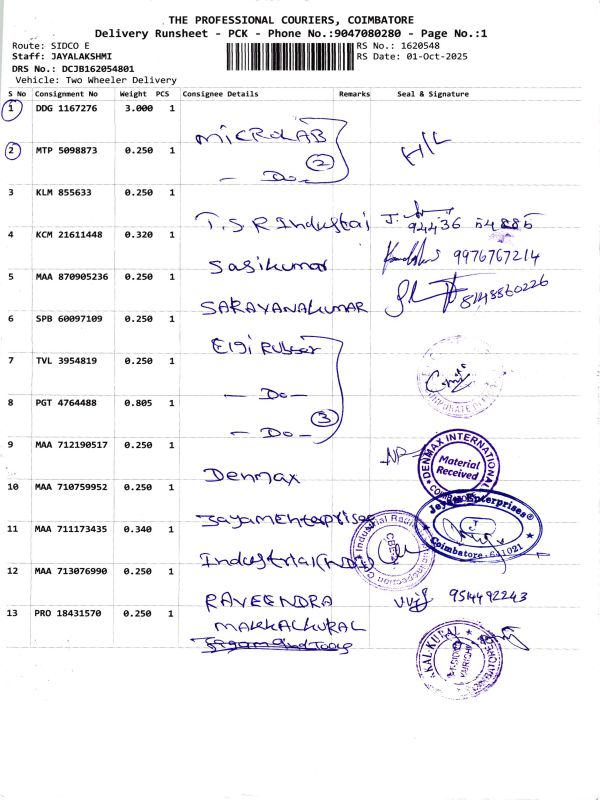 THE PROFESSIONAL COURIERS, COIMBATORE
Delivery Runsheet - PCK - Phone No.:9047080280 - Page No.:1
Route: SIDCO E
RS No.: 1620548
Staff: JAYALAKSHMI
RS Date: 01-Oct-2025
DRS No.: DCJB162054801
Vehicle: Two Wheeler Delivery
S No Consignment No Weight PCS Consignee Details Remarks Seal & Signature
1 DDG 1167276 3.000 1 MICROLAB
2 MTP 5098873 0.250 1 - Do - 2 H/L
3 KLM 855633 0.250 1 T.S R Industai J. 94436 54885
4 KCM 21611448 0.320 1 Sasikumar 9976767214
5 MAA 870905236 0.250 1 SARAVANAKUMAR 8148860226
6 SPB 60097109 0.250 1 Elgi Rubber
7 TVL 3954819 0.250 1 - Do - CORPORATE
8 PGT 4764488 0.805 1 - Do - 3
9 MAA 712190517 0.250 1 Denmax DENMAX INTERNATIONAL Material Received
10 MAA 710759952 0.250 1 Jayam Enterprises Jayam Enterprises Coimbatore - 641021
11 MAA 711173435 0.340 1 Industrial (INDI) Industrial Inspection
12 MAA 713076990 0.250 1 RAVEENDRA 954492243
13 PRO 18431570 0.250 1 MAKKALKURAL KAL KURAL